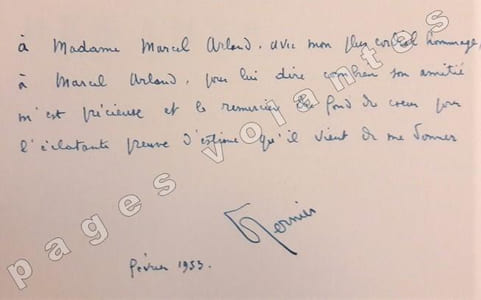 à Madame Marcel Arland, avec mon plus cordial hommage,
à Marcel Arland, pour lui dire combien son amitié
m'est précieuse et le remercier du fond du coeur pour
l'éclatante preuve d'estime qu'il vient de me donner
février 1953.
pages volantes